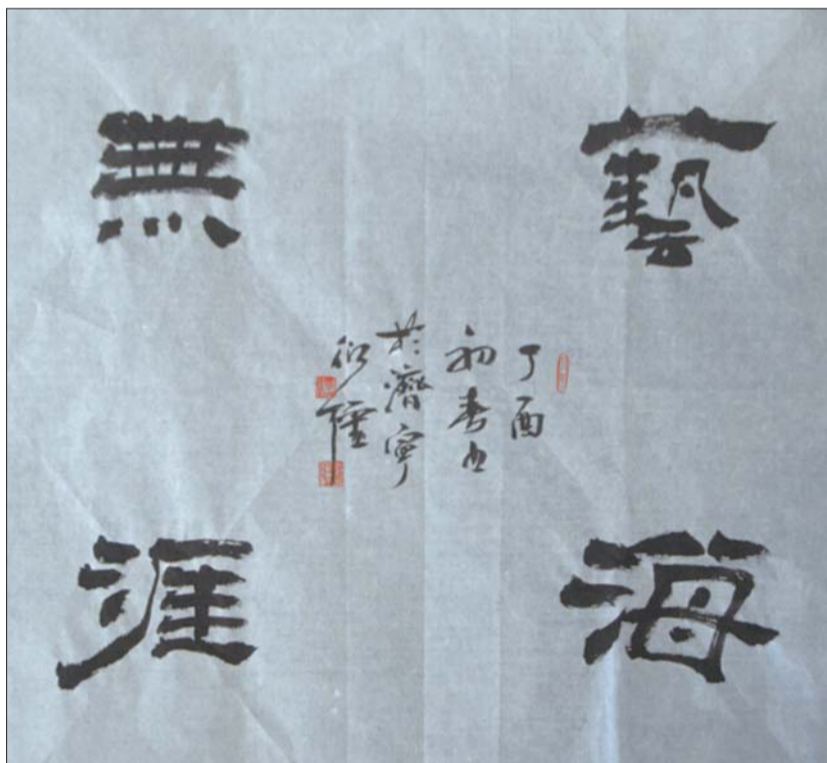 藝海
無涯
丁酉
初春
於濟寧